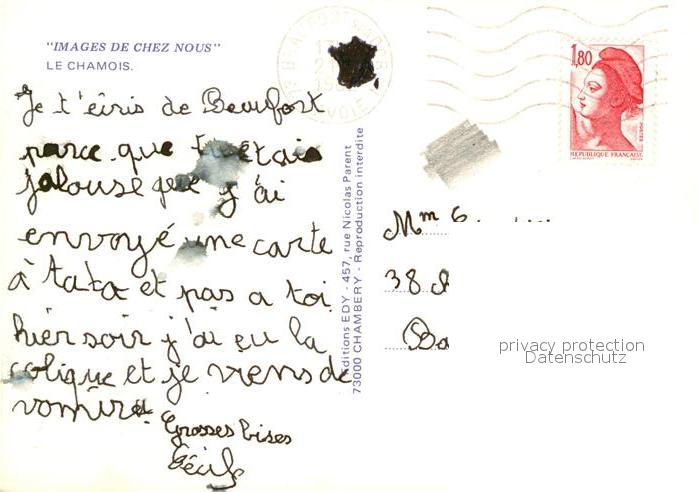 "IMAGES DE CHEZ NOUS"
LE CHAMOIS.
Je t'éiris de Beaufort
parce que tu étais
jalouse que j'ai
envoyé une carte
à tata et pas a toi
hier soir j'ai eu la
colique et je viens de
vomir
Grosses bises
Cécile
Editions EDY - 457, rue Nicolas Parent
73000 CHAMBERY - Reproduction interdite
1,80
POSTES
REPUBLIQUE FRANÇAISE
Mm G
38
Ba
privacy protection
Datenschutz